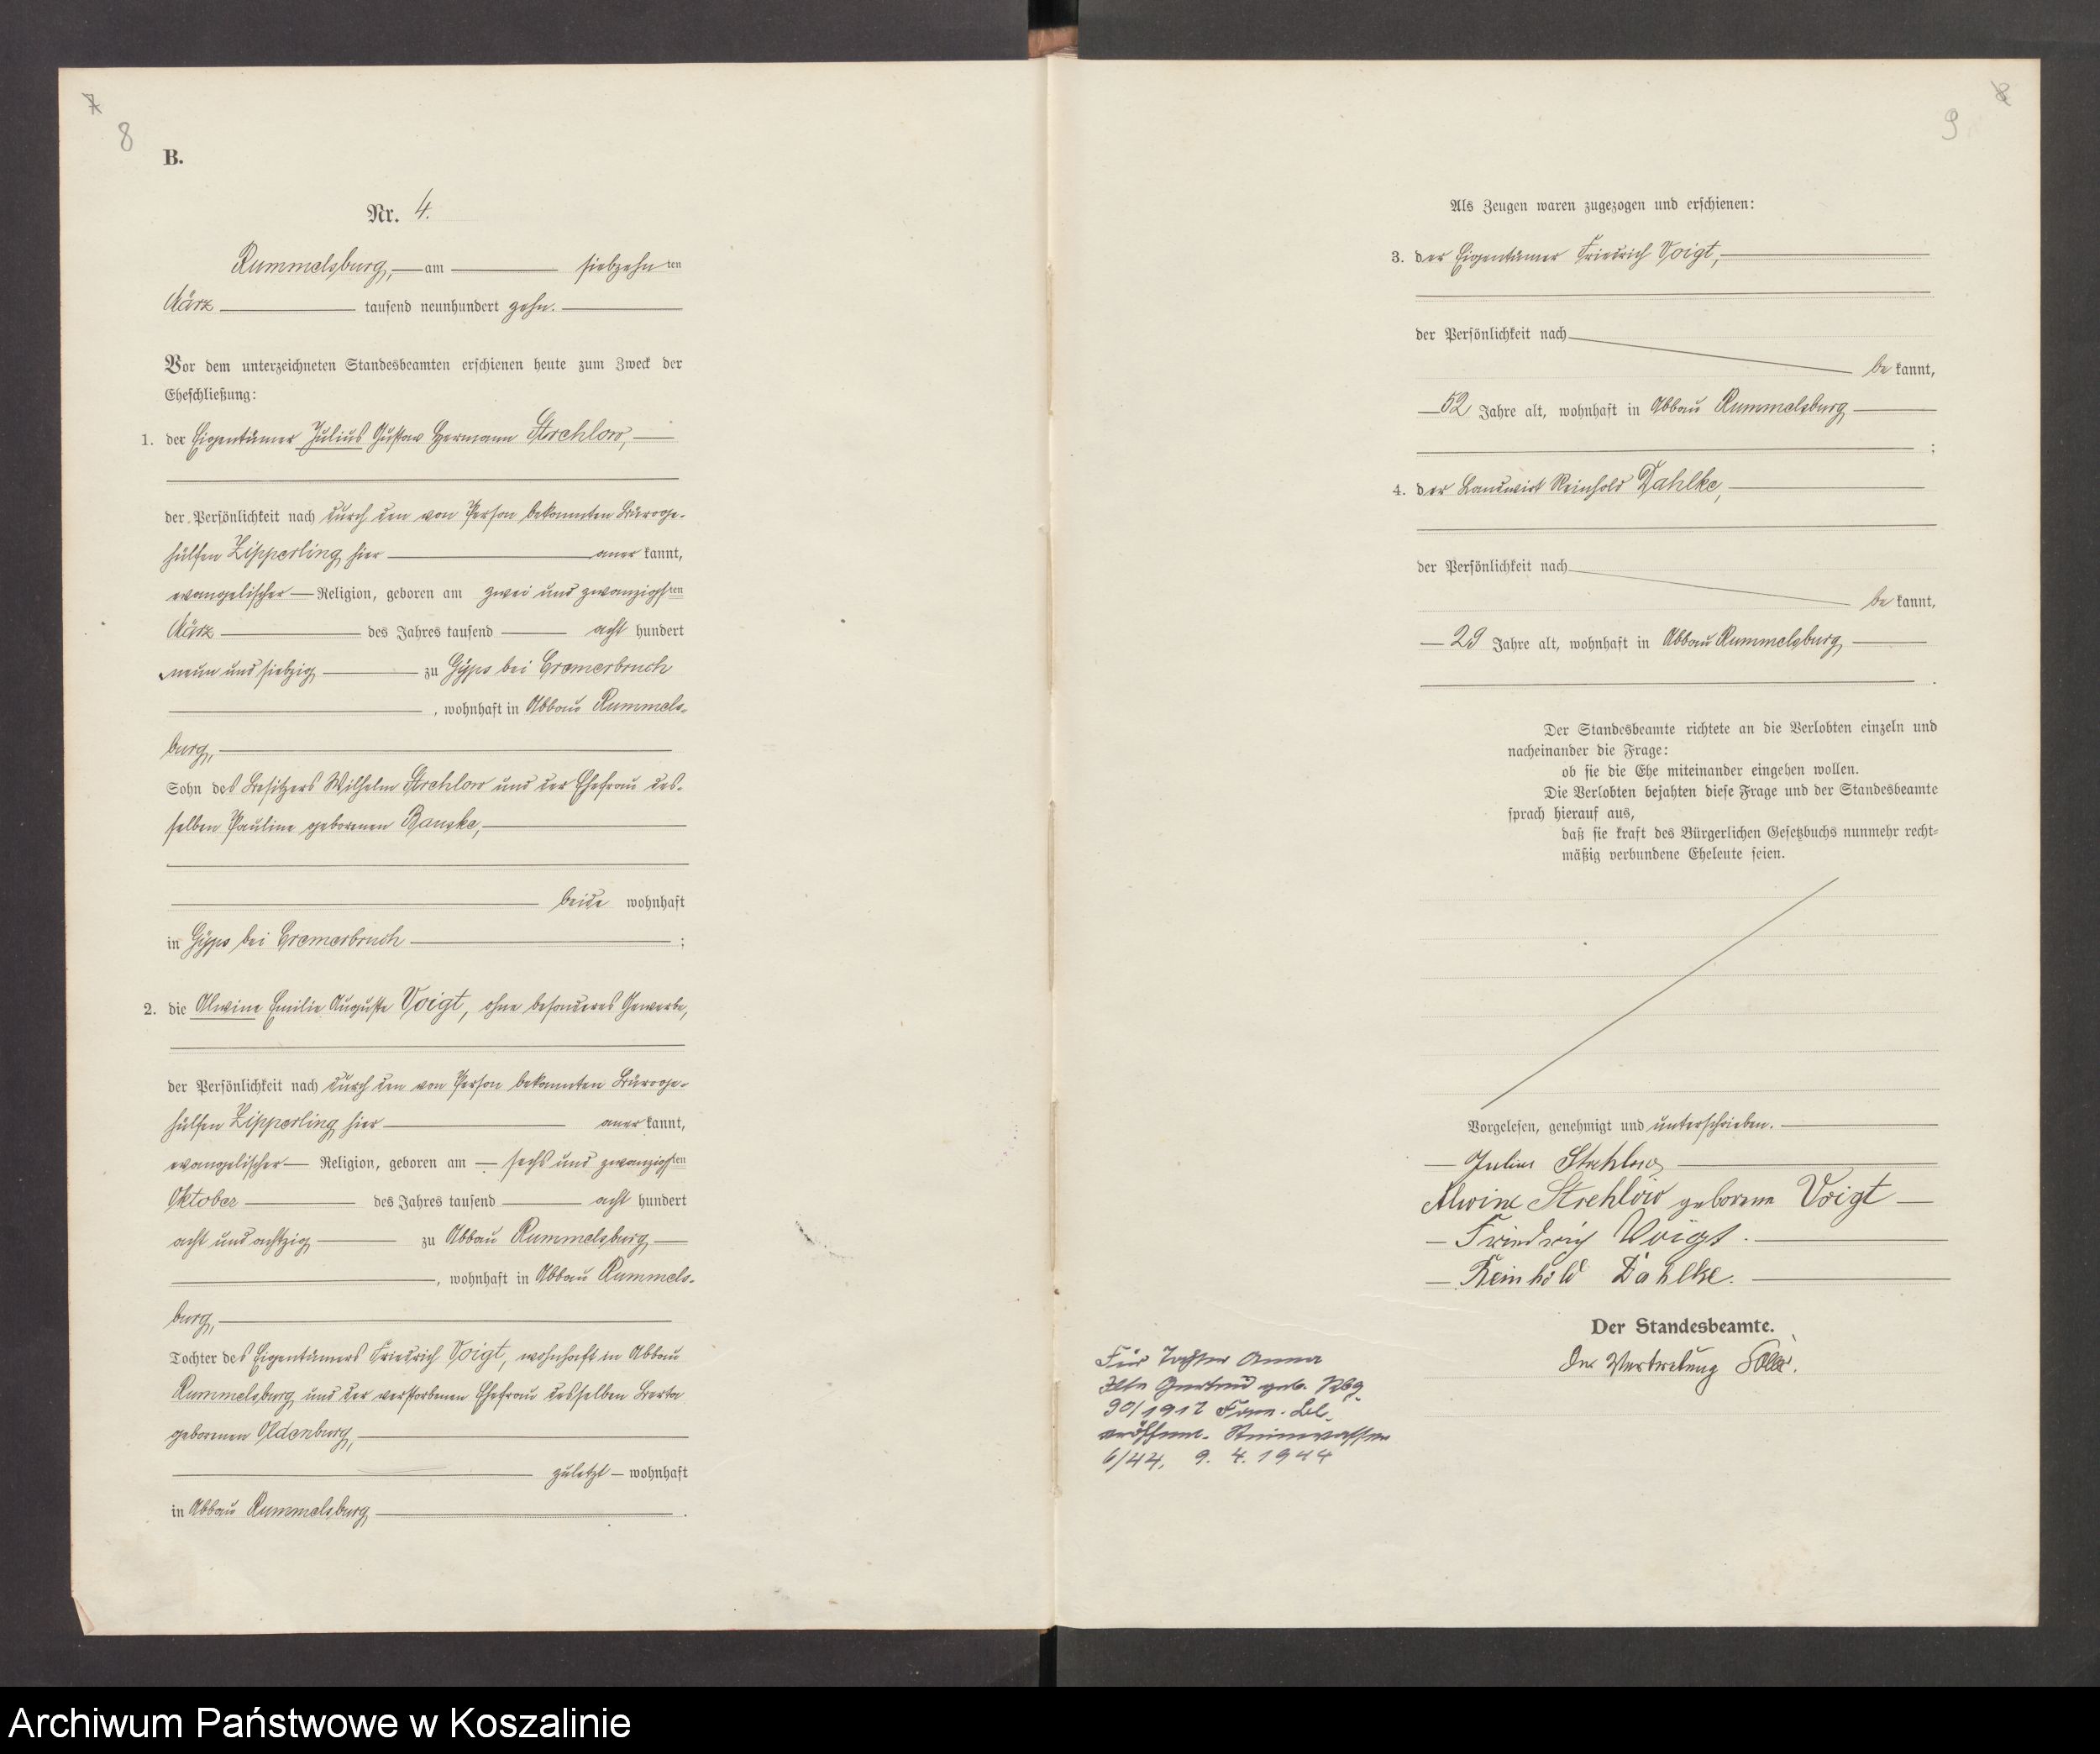 7
8
B.
Nr. 4.
Rummelsburg, am siebzehnten
März tausend neunhundert zehn.
Vor dem unterzeichneten Standesbeamten erschienen heute zum Zweck der
Eheschließung:
1. der Eigentümer Julius Gustav Hermann Strehlow,
der Persönlichkeit nach durch den von Person bekannten Büroge-
hülfen Zipperling hier anerkannt,
evangelischer Religion, geboren am zwei und zwanzigsten
März des Jahres tausend acht hundert
neun und siebzig zu Gyps bei Cremerbruch
, wohnhaft in Abbau Rummels-
burg,
Sohn des Besitzers Wilhelm Strehlow und der Ehefrau des-
selben Pauline geborenen
beide wohnhaft
in Gyps bei Cremerbruch ;
2. die Alwine Emilie Auguste Voigt, ohne besonderes Gewerbe,
der Persönlichkeit nach durch den von Person bekannten Büroge-
hülfen Zipperling hier anerkannt,
evangelischer Religion, geboren am sechs und zwanzigsten
Oktober des Jahres tausend acht hundert
acht und achtzig zu Abbau Rummelsburg
, wohnhaft in Abbau Rummels-
burg,
Tochter des Eigentümers Friedrich Voigt, wohnhaft in Abbau
Rummelsburg und der verstorbenen Ehefrau desselben Berta
geborenen Oldenburg,
zuletzt wohnhaft
in Abbau Rummelsburg .
8
9
Als Zeugen waren zugezogen und erschienen:
3. der Eigentümer Friedrich Voigt,
der Persönlichkeit nach
bekannt,
52 Jahre alt, wohnhaft in Abbau Rummelsburg
;
4. der Landwirt Reinhold Dahlke,
der Persönlichkeit nach
bekannt,
29 Jahre alt, wohnhaft in Abbau Rummelsburg
.
Der Standesbeamte richtete an die Verlobten einzeln und
nacheinander die Frage:
ob sie die Ehe miteinander eingehen wollen.
Die Verlobten bejahten diese Frage und der Standesbeamte
sprach hierauf aus,
daß sie kraft des Bürgerlichen Gesetzbuchs nunmehr recht-
mäßig verbundene Eheleute seien.
Vorgelesen, genehmigt und unterschrieben.
Julius Strehlow
Alwine Strehlow geborene Voigt
Friedrich Voigt.
Reinhold Dahlke.
Der Standesbeamte.
In Vertretung
Für Tochter Anna
Gertrud geb. Rbg.
90/1912 Fam. Bl.
eröffnet. Steinwasser
6/44, 9. 4. 1944
Archiwum Państwowe w Koszalinie